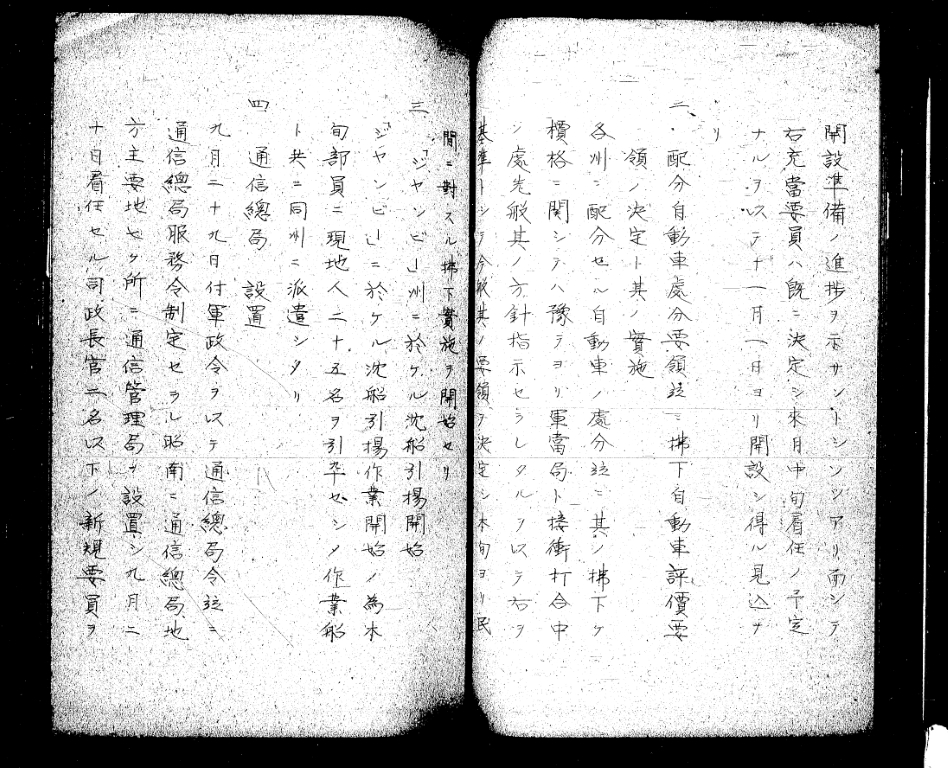 開設準備ノ進捗ヲ示サントシツツアリ而シテ
右充當要員ハ既ニ決定シ來月中旬着任ノ予定
ナルヲ以テ十一月一日ヨリ開設シ得ル見込ナ
リ
二、配分自動車處分要領竝ニ拂下自動車評價要
領ノ決定ト其ノ實施
各州ニ配分セル自動車ノ處分竝ニ其ノ拂下ケ
價格ニ關シテハ豫テヨリ軍當局ト接衝打合中
ノ處先般其ノ方針指示セラレタルヲ以テ右ヲ
基準トシテ分配其ノ要領ヲ決定シ本旬ヨリ民
間ニ對スル拂下實施ヲ開始セリ
三「ジャンビ」州ニ於ケル沈船引揚開始
「ジャンビー」ニ於ケル沈船引揚作業開始ノ為本
旬部員ニ現地人二十五名ヲ引卒セシメ作業船
ト共ニ同州ニ派遣シタリ
四 通信總局設置
九月二十九日付軍政令ヲ以テ通信總局令竝ニ
通信總局服務令制定セラレ昭南ニ通信總局地
方主要地七ケ所ニ通信管理局ヲ設置シ九月二
十日着任セル司政長官二名以下ノ新規要員ヲ